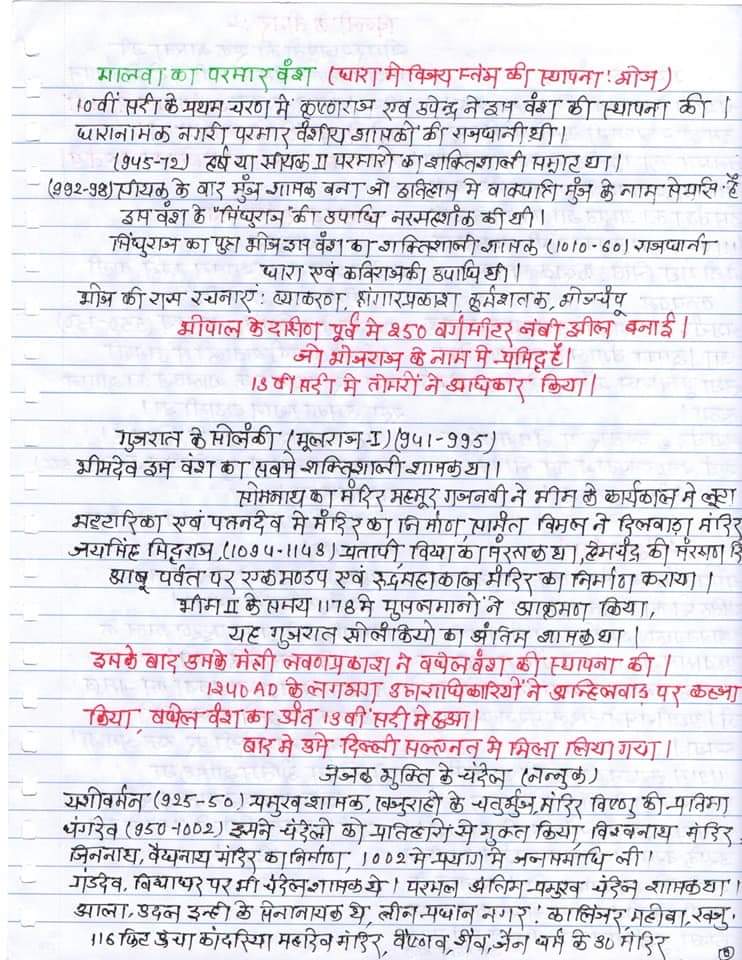 मालवा का परमार वंश (धारा में विजय स्तंभ की स्थापना : भोज)
10वीं सदी के प्रथम चरण में कृष्णराज एवं उपेन्द्र ने इस वंश की स्थापना की ।
धारानामक नगरी परमार वंशीय शासकों की राजधानी थी।
(945-72) हर्ष या सीयक II परमारों का शक्तिशाली सम्राट था।
(992-98) सीयक के बाद मुंज शासक बना जो इतिहास में वाक्पति मुंज के नाम से प्रसि. है
इस वंश के "सिंधुराज" की उपाधि नरसहशांक की थी।
सिंधुराज का पुत्र भोज इस वंश का शक्तिशाली शासक (1010-60) राजधानी
धारा एवं कविराज की उपाधि थी।
भोज की रचनाएं : व्याकरण, श्रृंगारप्रकाश, कुर्मशतक, भोजचंपू
भोपाल के दक्षिण पूर्व में 250 वर्गमीटर लंबी झील बनाई।
जो भोजराज के नाम से प्रसिद्ध है।
13 वीं सदी में तोमरों ने अधिकार किया।
गुजरात के सोलंकी (मूलराज-I) (941-995)
भीमदेव इस वंश का सबसे शक्तिशाली शासक था।
सोमनाथ का मंदिर महमूद गजनवी ने भीम के कार्यकाल में लूटा
भट्टारिका एवं पतनदेव में मंदिर का निर्माण, सामंत विमल ने दिलवाड़ा मंदिर
जयसिंह सिद्धराज, (1094-1143) प्रतापी, विद्या का संरक्षक था, हेमचंद्र की संरक्षण दि
आबू पर्वत पर एक मण्डप एवं रूद्रमहाकाल मंदिर का निर्माण कराया।
भीम II के समय 1178 में मुसलमानों ने आक्रमण किया,
यह गुजरात सोलंकियों का अंतिम शासक था।
इसके बाद उसके मंत्री लवणप्रकाश ने वघेल वंश की स्थापना की।
1240 AD के लगभग उत्तराधिकारियों ने अन्हिलवाड़ पर कब्जा
किया, वघेल वंश का अंत 13वीं सदी में हुआ।
बाद में उसे दिल्ली सल्तनत में मिला लिया गया।
जेजाक भुक्ति के चंदेल (नन्नुक)
यशोवर्मन (925-50) प्रमुख शासक, खजुराहो के चतुर्भुज, मंदिर विष्णु की प्रतिमा
धंगदेव (950-1002) इसने चंदेलों को प्रतिहारों से मुक्त किया, विश्वनाथ मंदिर
जिननाथ, वैधनाथ मंदिर का निर्माण, 1002 में प्रयाग में जलसमाधि ली।
गंडदेव, विद्याधर पर भी चंदेल शासक थे। परमल अंतिम प्रमुख चंदेल शासक था।
आला, उदल इन्हीं के सेनानायक थे, तीन प्रधान नगर : कालिंजर, महोवा, खजु.
116 फिट ऊंचा कांदरिया महादेव मंदिर, वैष्णव, शैव, जैन धर्म के 30 मंदिर